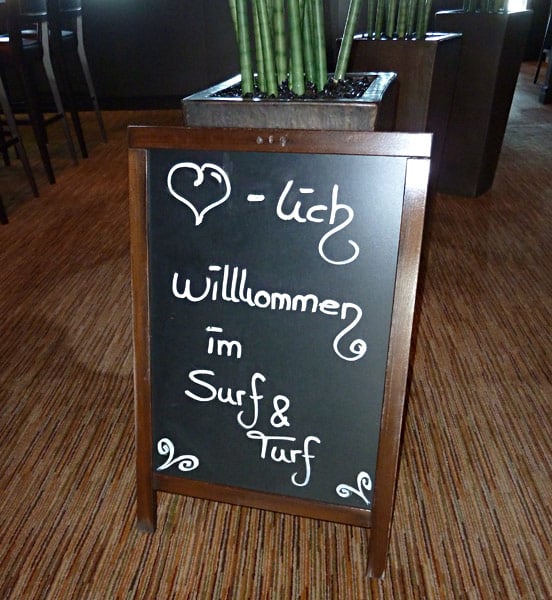 ♡ - lich
willkommen
im
Surf &
Turf